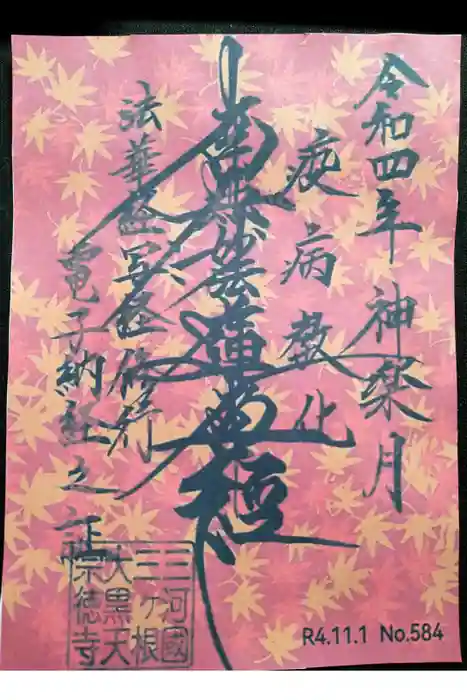 令和四年 神樂月
疫病教化
南無妙法蓮華経
法華経写経修行
電子納経之証
三河國
三ヶ根
大黒天
宗徳寺
R4.11.1 No.584